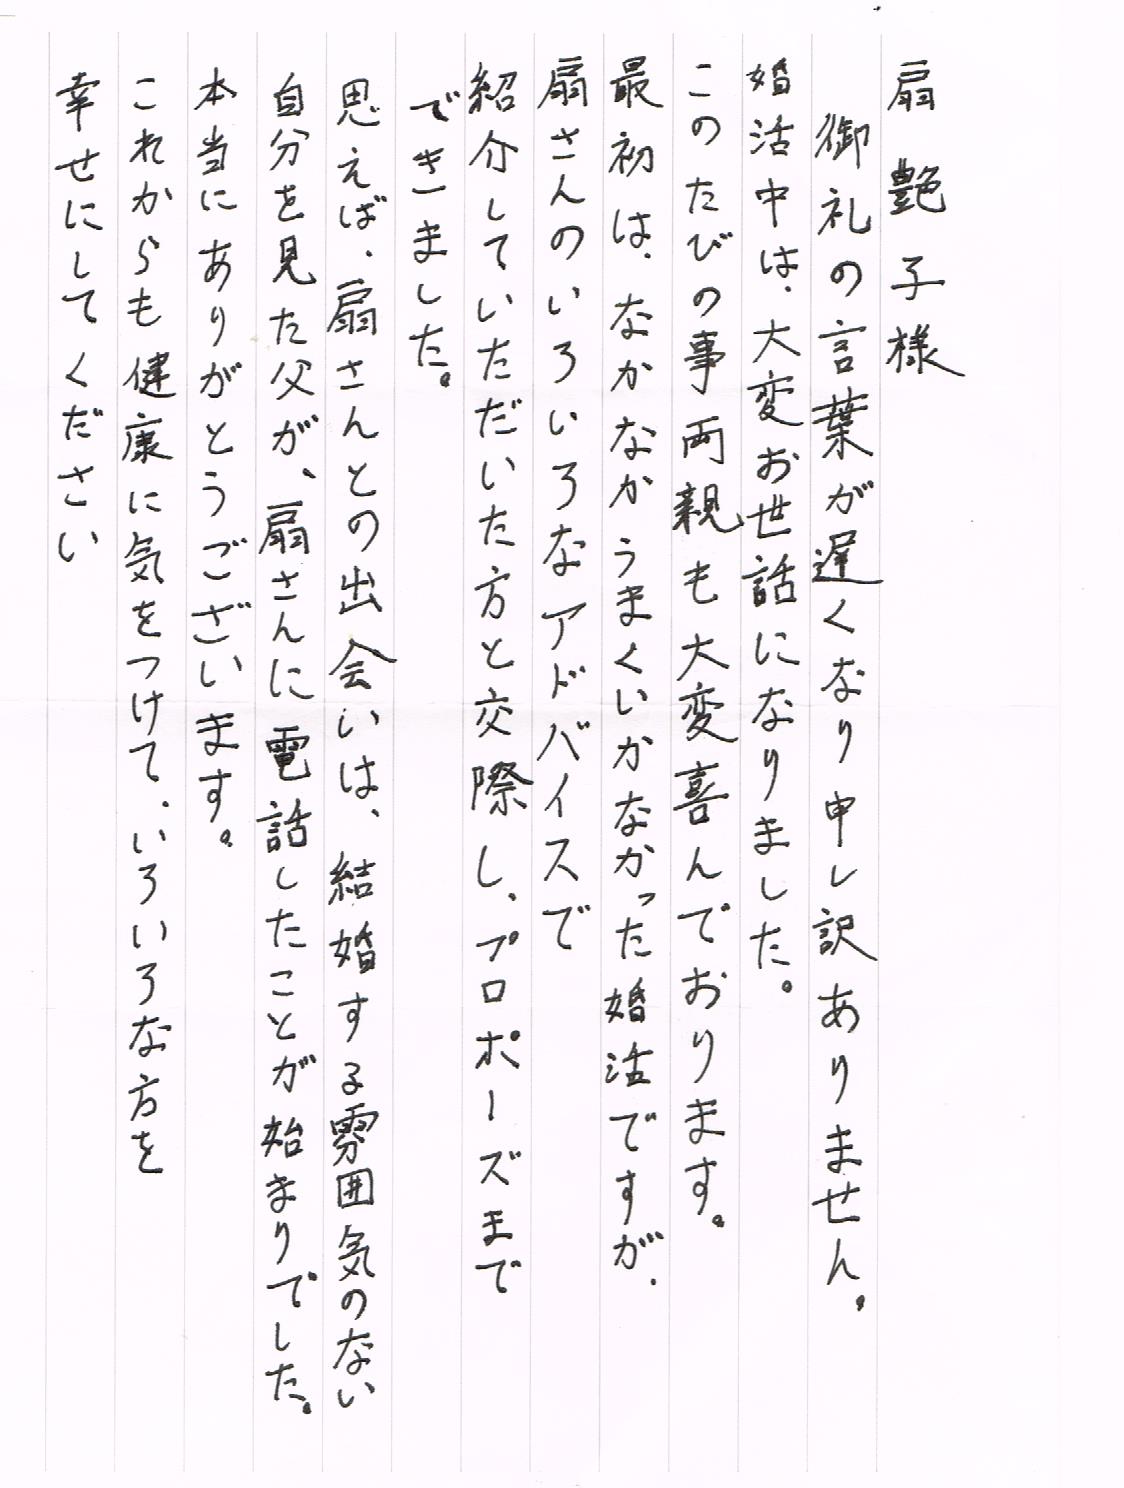 扇艶子様
御礼の言葉が遅くなり申し訳ありません。
婚活中は、大変お世話になりました。
このたびの事両親も大変喜んでおります。
最初は、なかなかうまくいかなかった婚活ですが、
扇さんのいろいろなアドバイスで
紹介していただいた方と交際し、プロポーズまで
できました。
思えば、扇さんとの出会いは、結婚する雰囲気のない
自分を見た父が、扇さんに電話したことが始まりでした。
本当にありがとうございます。
これからも健康に気をつけて、いろいろな方を
幸せにしてください